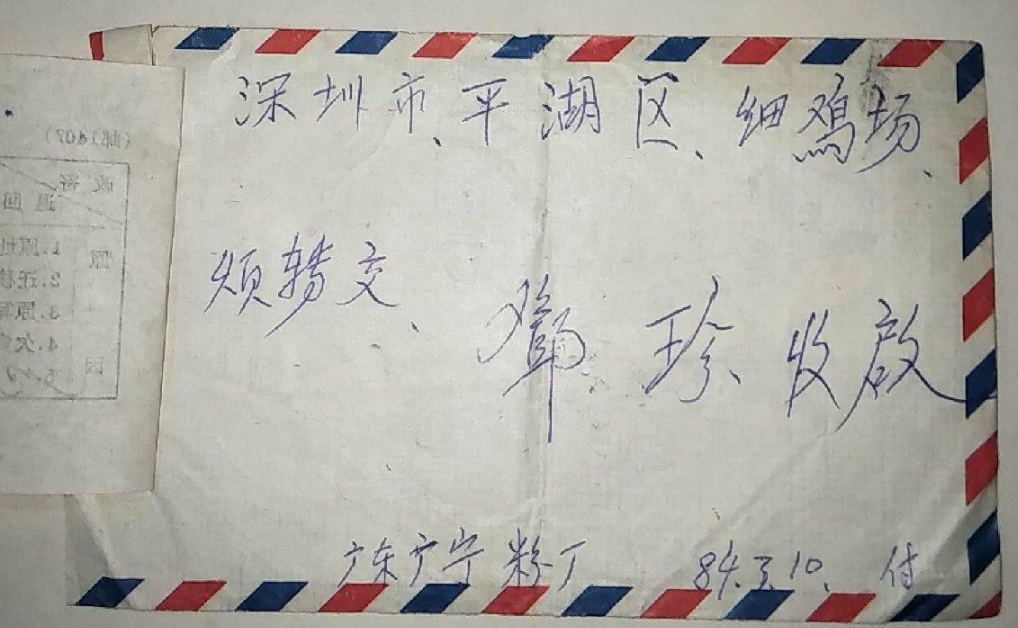 深圳市、平湖区、细鸡场、
烦转交、
邓珍、收启
广东广宁粉厂 84.3.10、付
(邮1407)
改寄
退回
原
1.原址
2.迁移
3.原写
4.欠资
因